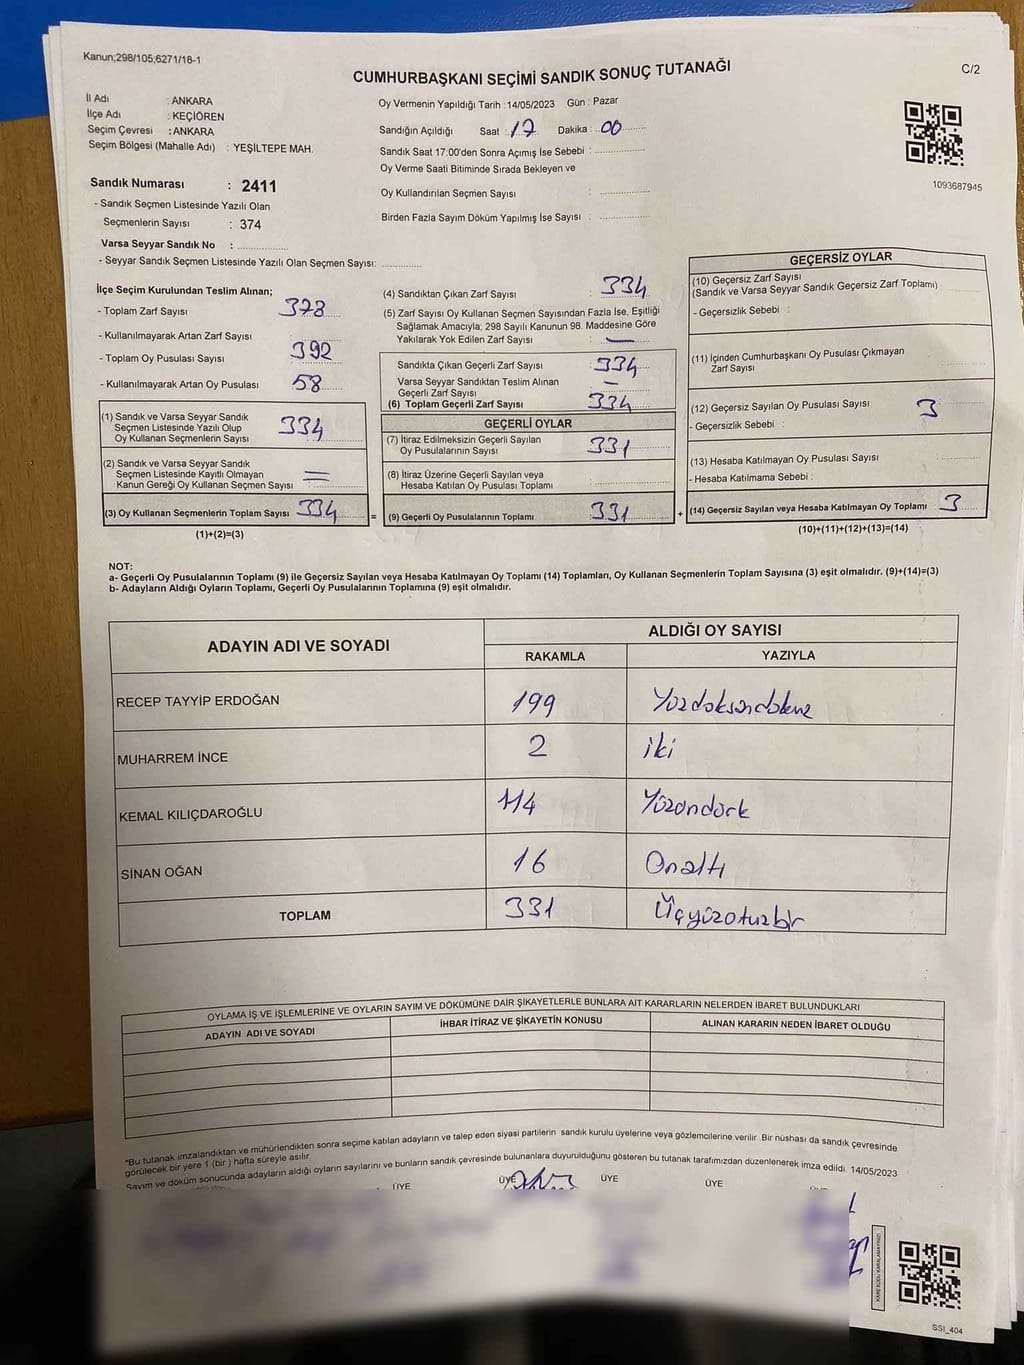 Kanun;298/105;6271/18-1
CUMHURBAŞKANI SEÇİMİ SANDIK SONUÇ TUTANAĞI
C/2
İl Adı : ANKARA
İlçe Adı : KEÇİÖREN
Seçim Çevresi : ANKARA
Seçim Bölgesi (Mahalle Adı) : YEŞİLTEPE MAH.
Oy Vermenin Yapıldığı Tarih : 14/05/2023 Gün : Pazar
Sandığın Açıldığı Saat : 17 Dakika : 00
Sandık Saat 17:00'den Sonra Açımış İse Sebebi :
Oy Verme Saati Bitiminde Sırada Bekleyen ve
Oy Kullandırılan Seçmen Sayısı :
Birden Fazla Sayım Döküm Yapılmış İse Sayısı :
1093687945
Sandık Numarası : 2411
- Sandık Seçmen Listesinde Yazılı Olan
Seçmenlerin Sayısı : 374
Varsa Seyyar Sandık No :
- Seyyar Sandık Seçmen Listesinde Yazılı Olan Seçmen Sayısı:
İlçe Seçim Kurulundan Teslim Alınan;
- Toplam Zarf Sayısı 378
- Kullanılmayarak Artan Zarf Sayısı
- Toplam Oy Pusulası Sayısı 392
- Kullanılmayarak Artan Oy Pusulası 58
(1) Sandık ve Varsa Seyyar Sandık
Seçmen Listesinde Yazılı Olup
Oy Kullanan Seçmenlerin Sayısı 334
(2) Sandık ve Varsa Seyyar Sandık
Seçmen Listesinde Kayıtlı Olmayan
Kanun Gereği Oy Kullanan Seçmen Sayısı =
(3) Oy Kullanan Seçmenlerin Toplam Sayısı 334
(1)+(2)=(3)
(4) Sandıktan Çıkan Zarf Sayısı : 334
(5) Zarf Sayısı Oy Kullanan Seçmen Sayısından Fazla İse, Eşitliği
Sağlamak Amacıyla; 298 Sayılı Kanunun 98. Maddesine Göre
Yakılarak Yok Edilen Zarf Sayısı : —
Sandıkta Çıkan Geçerli Zarf Sayısı : 334
Varsa Seyyar Sandıktan Teslim Alınan
Geçerli Zarf Sayısı : —
(6) Toplam Geçerli Zarf Sayısı 334
GEÇERLİ OYLAR
(7) İtiraz Edilmeksizin Geçerli Sayılan
Oy Pusulalarının Sayısı 331
(8) İtiraz Üzerine Geçerli Sayılan veya
Hesaba Katılan Oy Pusulası Toplamı
= (9) Geçerli Oy Pusulalarının Toplamı 331
GEÇERSİZ OYLAR
(10) Geçersiz Zarf Sayısı
(Sandık ve Varsa Seyyar Sandık Geçersiz Zarf Toplamı)
- Geçersizlik Sebebi :
(11) İçinden Cumhurbaşkanı Oy Pusulası Çıkmayan
Zarf Sayısı
(12) Geçersiz Sayılan Oy Pusulası Sayısı 3
- Geçersizlik Sebebi :
(13) Hesaba Katılmayan Oy Pusulası Sayısı
- Hesaba Katılmama Sebebi :
+ (14) Geçersiz Sayılan veya Hesaba Katılmayan Oy Toplamı 3
(10)+(11)+(12)+(13)=(14)
NOT:
a- Geçerli Oy Pusulalarının Toplamı (9) ile Geçersiz Sayılan veya Hesaba Katılmayan Oy Toplamı (14) Toplamları, Oy Kullanan Seçmenlerin Toplam Sayısına (3) eşit olmalıdır. (9)+(14)=(3)
b- Adayların Aldığı Oyların Toplamı, Geçerli Oy Pusulalarının Toplamına (9) eşit olmalıdır.
ADAYIN ADI VE SOYADI
ALDIĞI OY SAYISI
RAKAMLA YAZIYLA
RECEP TAYYİP ERDOĞAN 199 Yüzdoksandokuz
MUHARREM İNCE 2 iki
KEMAL KILIÇDAROĞLU 114 Yüzondört
SİNAN OĞAN 16 Onaltı
TOPLAM 331 Üçyüzotuzbir
OYLAMA İŞ VE İŞLEMLERİNE VE OYLARIN SAYIM VE DÖKÜMÜNE DAİR ŞİKAYETLERLE BUNLARA AİT KARARLARIN NELERDEN İBARET BULUNDUKLARI
ADAYIN ADI VE SOYADI İHBAR İTİRAZ VE ŞİKAYETİN KONUSU ALINAN KARARIN NEDEN İBARET OLDUĞU
*Bu tutanak imzalandıktan ve mühürlendikten sonra seçime katılan adayların ve talep eden siyasi partilerin sandık kurulu üyelerine veya gözlemcilerine verilir. Bir nüshası da sandık çevresinde
görülecek bir yere 1 (bir ) hafta süreyle asılır.
Sayım ve döküm sonucunda adayların aldığı oyların sayılarını ve bunların sandık çevresinde bulunanlara duyurulduğunu gösteren bu tutanak tarafımızdan düzenlenerek imza edildi. 14/05/2023
ÜYE ÜYE ÜYE ÜYE
KARE KODU KARALAMAYINIZ!
SSI_404